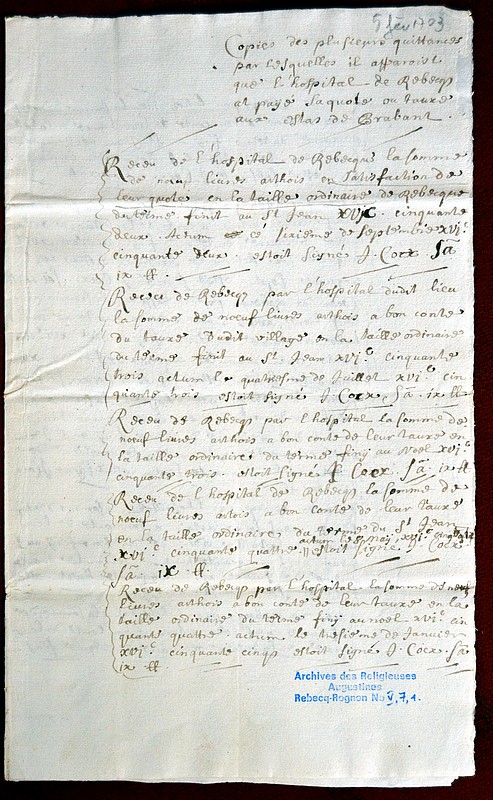 5 fév 1703
Copies des plusieurs quittances
par lesquelles il apparoist
que l'hospital de Rebecq
at payé sa quote ou taxe
aux estas de Brabant.
Receu de l'hospital de Rebecque la somme
de noeuf livres arthois en satisfaction de
leur quote en la taille ordinaire de Rebecque
du terme finit au St Jean XVIC cinquante
deux Actum ce sixieme de septembre xvi.c
cinquante deux. estoit signé J. Cocx Sã
ix ff
Receu de Rebecq par l'hospital dudit lieu
la somme de noeuf livres arthois a bon conte
du taxe dudit village en la taille ordinaire
du terme finit au St. Jean xvi.c cinquante
trois actum le quatresme de Juillet xvi.c cin
quante trois estoit signé J. Cocx. Sã ix ff
Receu de Rebecq par l'hospital la somme de
noeuf livres arthois a bon conte de leur taxe en
la taille ordinaire du terme finy au Noel xvi.c
cinquante trois. estoit signé J. Cocx Sã ix ff
Receu de l'hospital de Rebecq la somme de
noeuf livres artois a bon conte de leur taxe
en la taille ordinaire du terme du St Jean
actum le may xvi.c cinquante
xvi.c cinquante quattre. estoit signé J. Cocx
Sã ix ff
Receu de Rebecq par l'hospital la somme de neuf
livres arthois a bon conte de leur taxe en la
taille ordinaire du terme finy au noel xvi.c cin
quante quattre. actum le tresiesme de Janvier
xvi.c cinquante cinq estoit signé J. Cocx. Sã
ix ff
Archives des Religieuses
Augustines
Rebecq-Rognon No V, 7, 1.